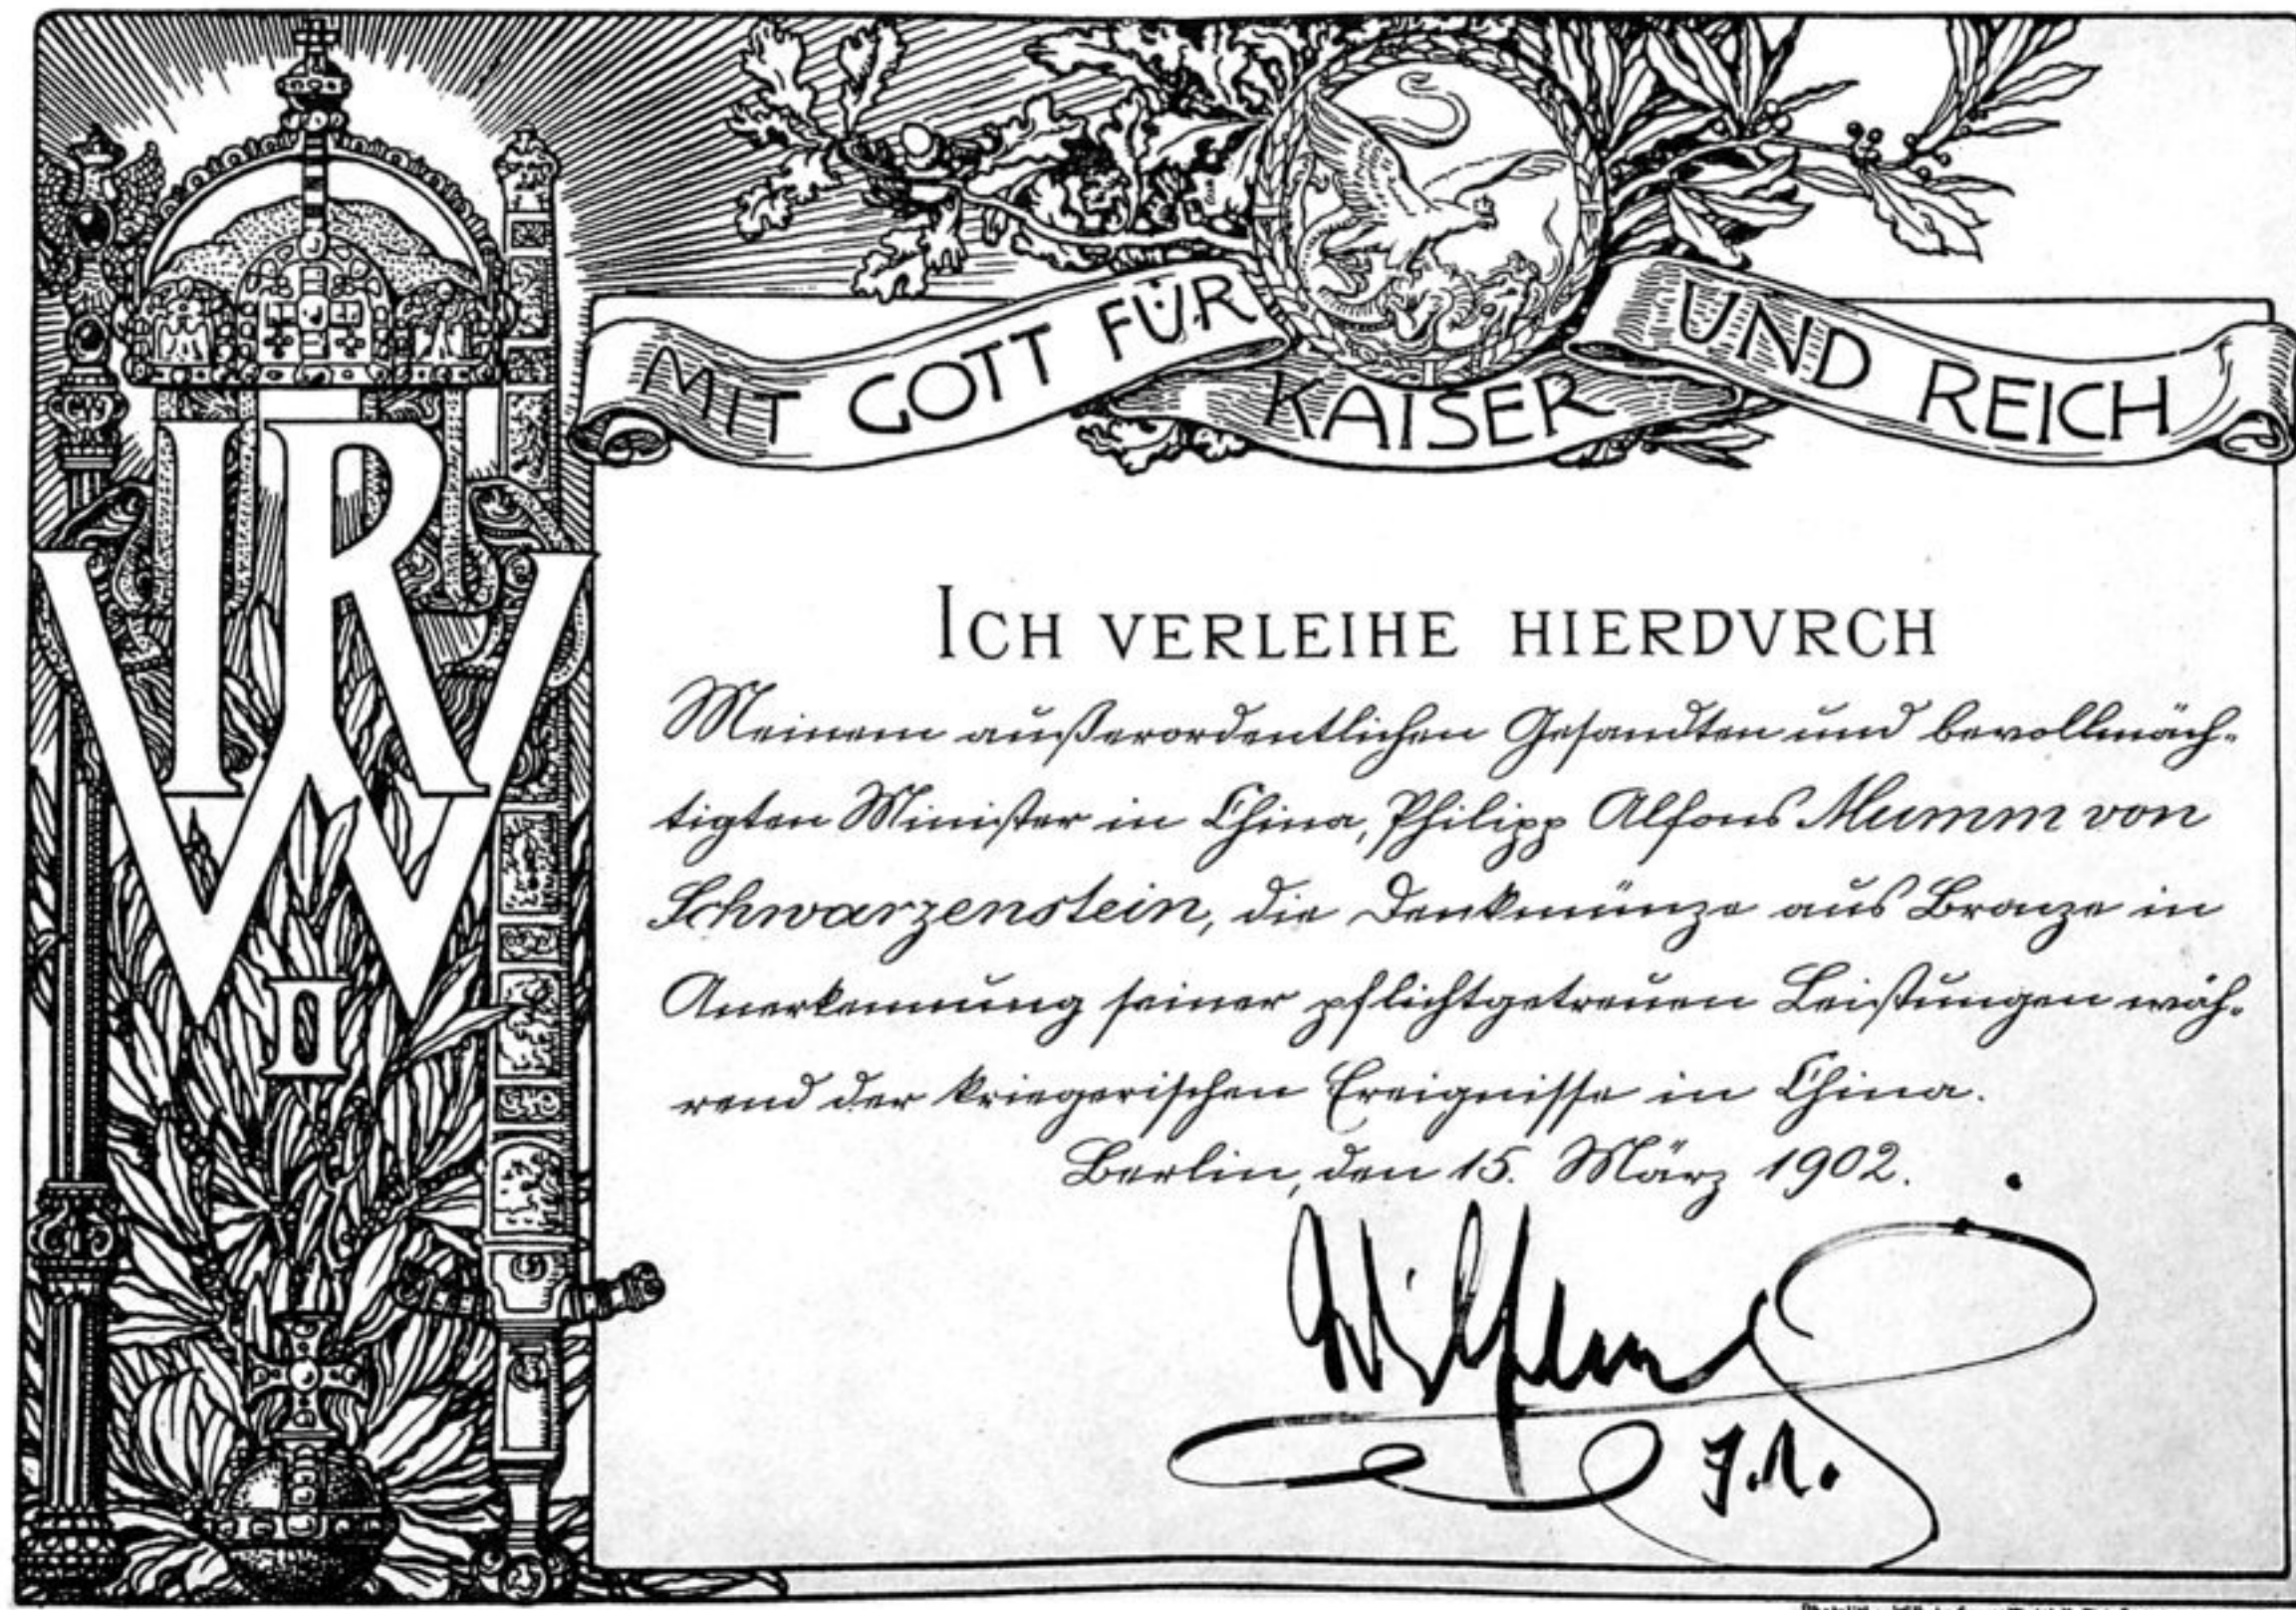 MIT GOTT FÜR KAISER UND REICH
IRW
II
ICH VERLEIHE HIERDVRCH
Meinem außerordentlichen Gesandten und bevollmäch-
tigten Minister in China, Philipp Alfons Mumm von
Schwarzenstein, die Denkmünze aus Bronze in
Anerkennung seiner pflichtgetreuen Leistungen wäh-
rend der kriegerischen Ereignisse in China.
Berlin, den 15. März 1902.
Wilhelm
I.R.